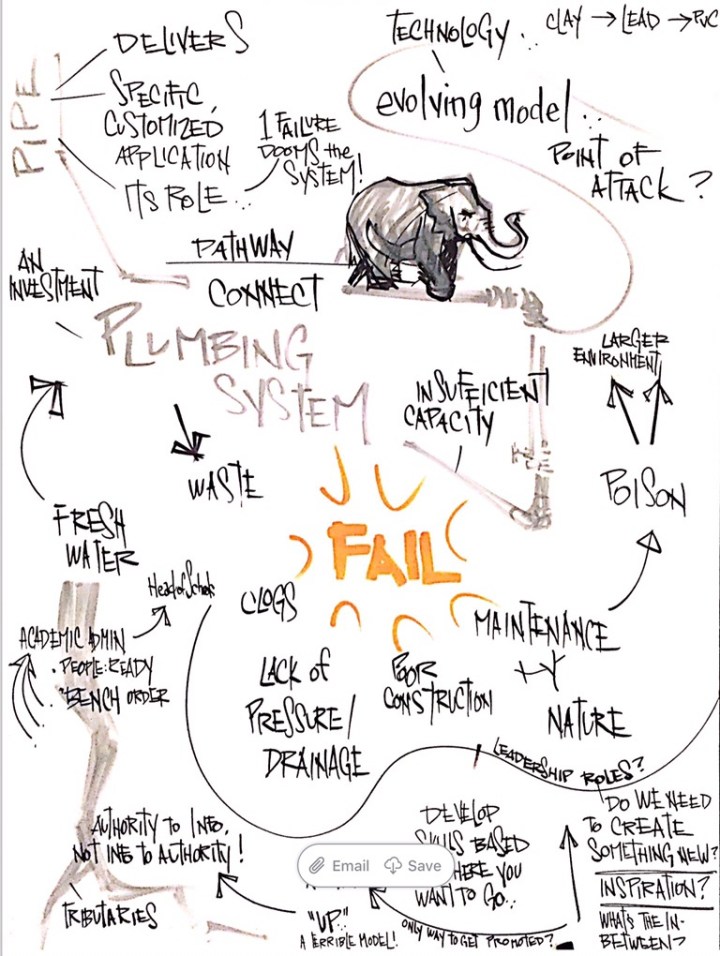 DELIVERS
SPECIFIC,
CUSTOMIZED
APPLICATION
ITS ROLE..
PIPE
1 FAILURE
DOOMS the
SYSTEM!
TECHNOLOGY...
CLAY → LEAD → PVC
evolving model..
POINT OF
ATTACK?
PATHWAY
CONNECT
AN
INVESTMENT
PLUMBING
SYSTEM
LARGER
ENVIRONMENT
INSUFFICIENT
CAPACITY
WASTE
POISON
FRESH
WATER
FAIL
Head of School
CLOGS
MAINTENANCE
ACADEMIC ADMIN
• PEOPLE: READY
• "BENCH ORDER
LACK of
PRESSURE/
DRAINAGE
POOR
CONSTRUCTION
NATURE
LEADERSHIP ROLES?
DO WE NEED
TO CREATE
SOMETHING NEW?
INSPIRATION?
WHAT'S THE IN-
BETWEEN?
AUTHORITY TO INFO,
NOT INFO TO AUTHORITY!
DEVELOP
SKILLS BASED
HERE YOU
WANT TO GO..
Email
Save
TRIBUTARIES
"UP"..
A TERRIBLE MODEL!
ONLY WAY TO GET PROMOTED?